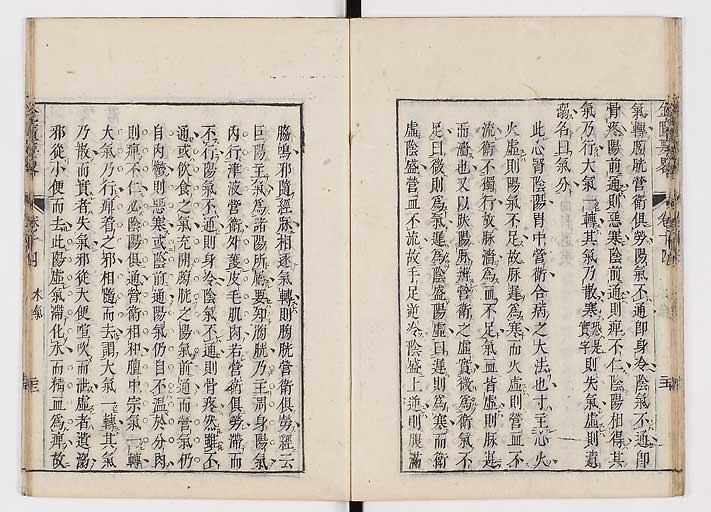 氣轉膀胱營衛俱勞陽氣不通即身冷陰氣不通即
骨疼陽前通則惡寒陰前通則痺不仁陰陽相得其
氣乃行大氣一轉其氣乃散寒恐是實字則失氣虛則遺
溺名曰氣分
此心腎陰陽胃中營衛合病之大法也寸主心火
火虛則陽氣不足故脉遲為寒而火虛則營血不
流衛不獨行故脉濇為血不足氣血皆虛則脉遲
而濇也又以趺陽脉辨營衛之虛實微為衛氣不
足曰微則為氣遲為陰盛陽虛曰遲則為寒而衛
虛陰盛營血不流故手足逆冷陰盛上逆則腹滿
腸鳴邪隨經脉相逐氣轉則膀胱營衛俱勞經云
巨陽主氣為諸陽所屬要知膀胱乃主周身陽氣
內行津液營衛外護皮毛肌肉若營衛俱勞滯而
不行陽氣不通則身冷陰氣不通則骨疼然雖不
通或飲食之氣充開膀胱之陽氣前通而營氣仍
自內欝則惡寒或陰前通陽氣仍自不溫於分肉
則痺不仁必陰陽俱通營衛相和膻中宗氣一轉
大氣乃行痺着之邪相隨而去謂大氣一轉其氣
乃散而實者失氣邪從大便喧吹而泄虛者遺溺
邪從小便而去此陽虛氣滯化水而精血為痺故
金匱要略
卷十四
水氣